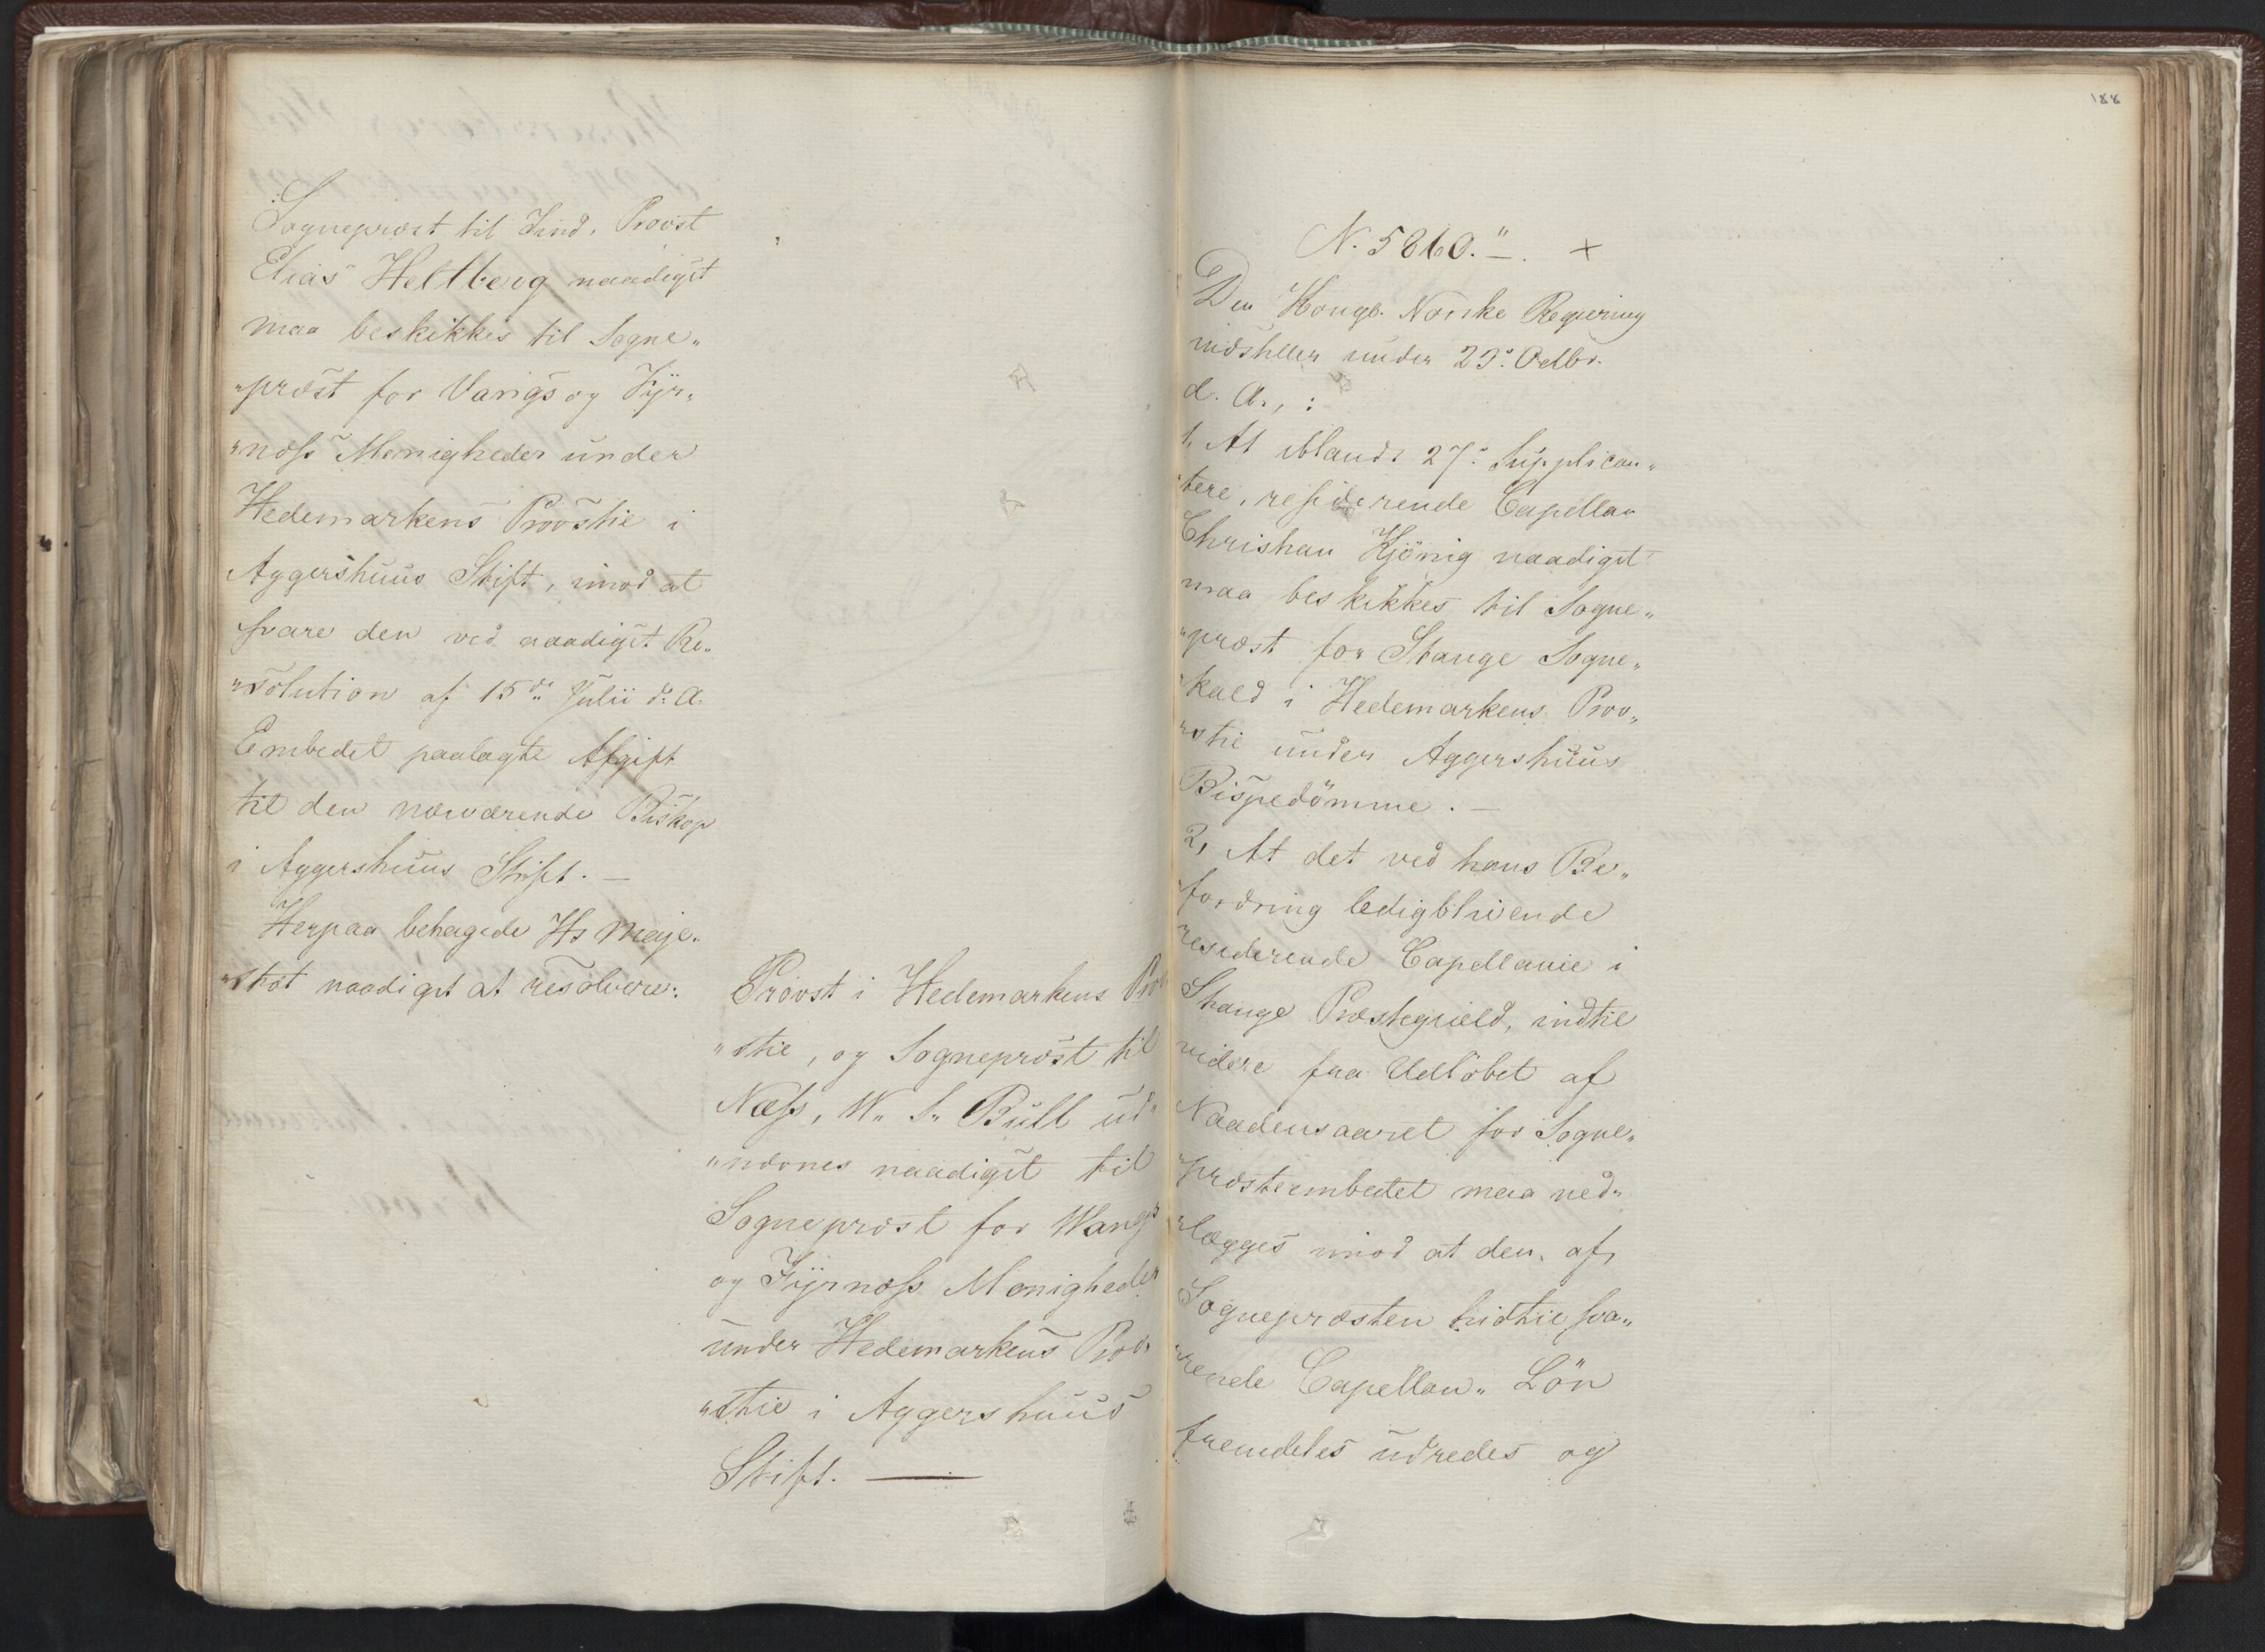 Sogneprest til Lind. Provst
Elias Heltberg naadigst
maa beskikkes til Sogne„
„præst for Vangs og Fyr„
„næss Menigheder under
Hedemarkens Provstie i
Aggershuus Stift, imod at
svare den ved naadigst Re„
„solution af 15de Julii d. A.
Embedet paalagte Afgift
til den nærværende Biskop
i Aggershuus Stift. —
Herpaa behagede Hs Maje„
„stæt naadigst at resolvere:
Provst i Hedemarkens Pro„
„stie, og Sogneprest til
Næss, W. S. Bull ud„
„nævnes naadigst til
Sogneprest for Wangs
og Fyrnæss Menigheder
under Hedemarkens Prov„
„stie i Aggershuus
Stift. —
188
N. 5860. „ — . x
Den Kongl. Norske Regiering
indstiller under 29. Octbr.
d. A., :
1, At iblandt 27. Supplican„
„tere, residerende Capellan
Christian Kjönig naadigst
maa beskikkes til Sogne„
„præst for Stange Sogne„
„kald i Hedemarkens Prov„
„stie under Aggershuus
Bispedömme. —
2, At det ved hans Be„
„fordring ledigblivende
residerende Capellanie i
Stange Præstegield, indtil
videre fra Udlöbet af
Naadensaaret for Sogne„
„præsteembedet maa ned„
„lægges imod at den, af
Sognepræsten hidtil sva„
„rende Capellan„ Lön
fremdeles udredes og